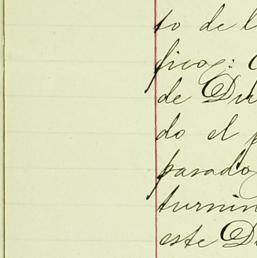 to de l
ficos:
de Du
do el p
pasado
turnin
este D